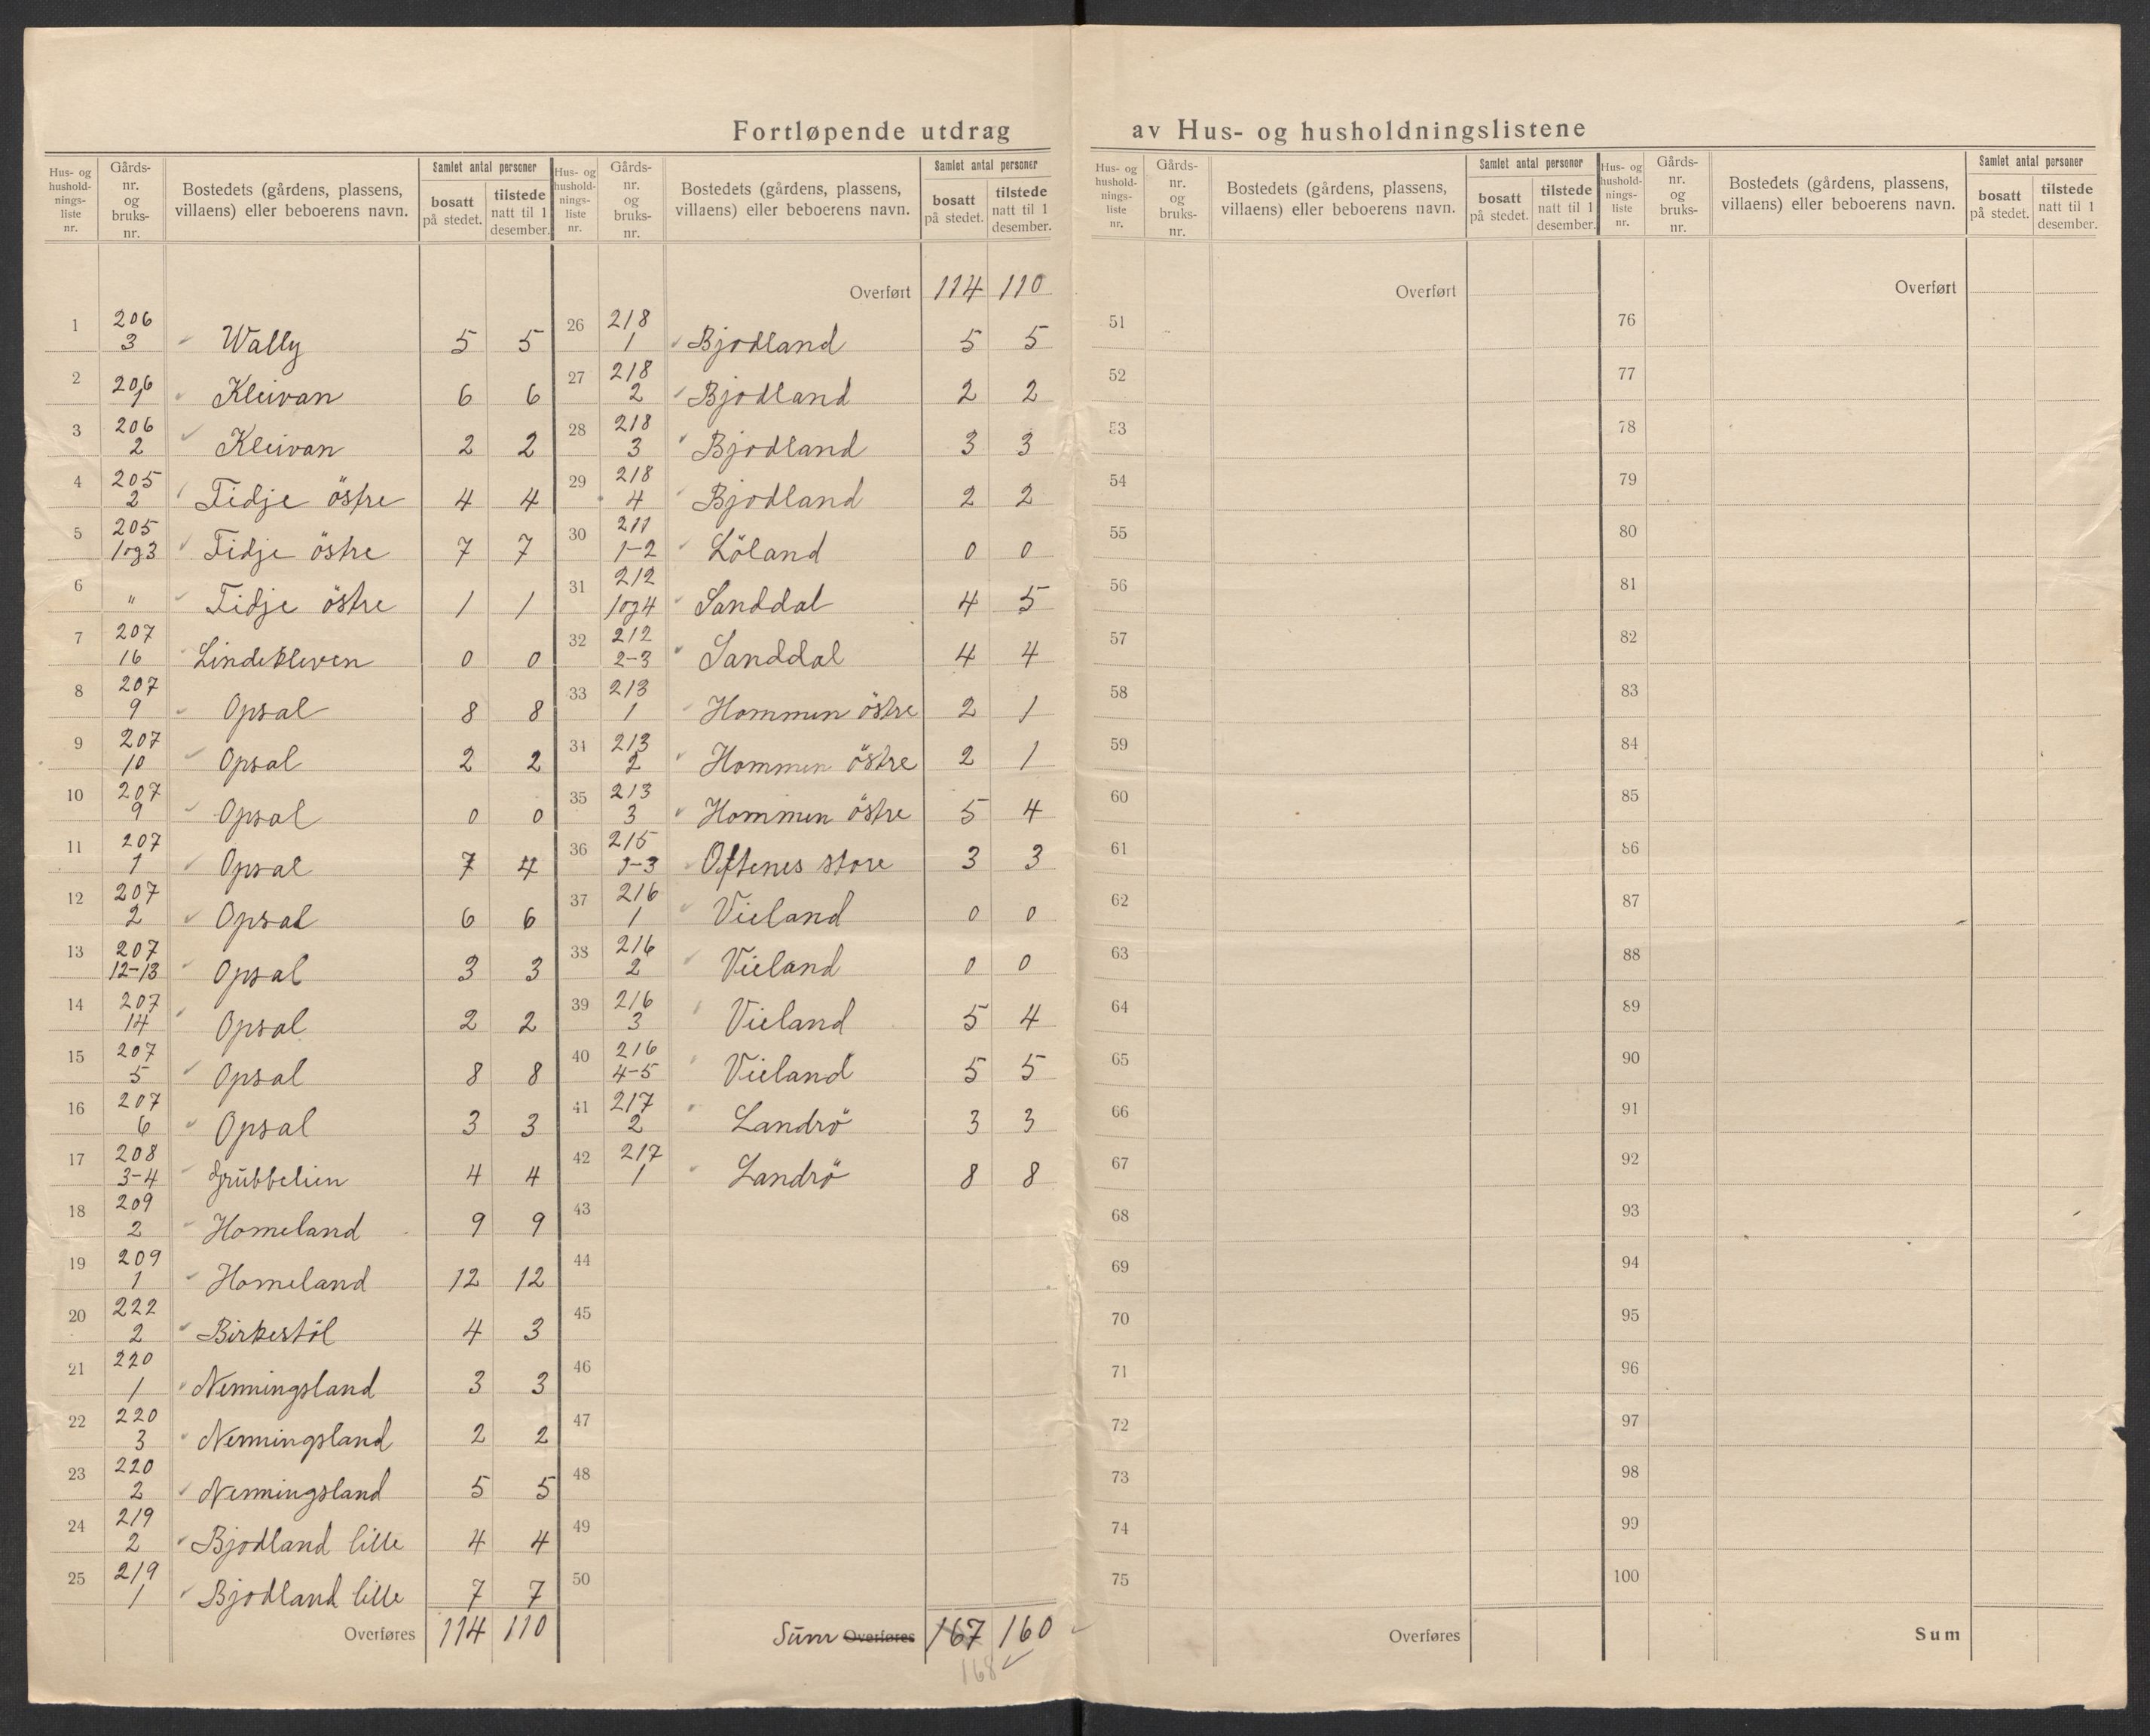 Fortløpende utdrag av Hus- og husholdningslistene
Hus- og hushold-nings-liste nr. | Gårds-nr. og bruks-nr. | Bostedets (gårdens, plassens, villaens) eller beboerens navn. | Samlet antal personer | bosatt på stedet. | tilstede natt til 1 desember.
1 206 3 Wally 5 5
2 206 1 Kleivan 6 6
3 206 2 Kleivan 2 2
4 205 2 Tidje östre 4 4
5 205 1og3 Tidje östre 7 7
6 " Tidje östre 1 1
7 207 16 Lindekleven 0 0
8 207 9 Opsal 8 8
9 207 10 Opsal 2 2
10 207 9 Opsal 0 0
11 207 1 Opsal 7 4
12 207 2 Opsal 6 6
13 207 12-13 Opsal 3 3
14 207 14 Opsal 2 2
15 207 5 Opsal 8 8
16 207 6 Opsal 3 3
17 208 3-4 Grubbelien 4 4
18 209 2 Homeland 9 9
19 209 1 Homeland 12 12
20 222 2 Birkestöl 4 3
21 220 1 Nenningsland 3 3
22 220 3 Nenningsland 2 2
23 220 2 Nenningsland 5 5
24 219 2 Bjodland lille 4 4
25 219 1 Bjodland lille 7 7
Overføres 114 110
Hus- og hushold-nings-liste nr. | Gårds-nr. og bruks-nr. | Bostedets (gårdens, plassens, villaens) eller beboerens navn. | Samlet antal personer | bosatt på stedet. | tilstede natt til 1 desember.
Overført 114 110
26 218 1 Bjodland 5 5
27 218 2 Bjodland 2 2
28 218 3 Bjodland 3 3
29 218 4 Bjodland 2 2
30 211 1-2 Löland 0 0
31 212 1og4 Sanddal 4 5
32 212 2-3 Sanddal 4 4
33 213 1 Hommen östre 2 1
34 213 2 Hommen östre 2 1
35 213 3 Hommen östre 5 4
36 215 1-3 Oftenes store 3 3
37 216 1 Vieland 0 0
38 216 2 Vieland 0 0
39 216 3 Vieland 5 4
40 216 4-5 Vieland 5 5
41 217 2 Landrö 3 3
42 217 1 Landrö 8 8
43
44
45
46
47
48
49
50
Sum Overføres 167 160
168
Hus- og hushold-nings-liste nr. | Gårds-nr. og bruks-nr. | Bostedets (gårdens, plassens, villaens) eller beboerens navn. | Samlet antal personer | bosatt på stedet. | tilstede natt til 1 desember.
Overført
51
52
53
54
55
56
57
58
59
60
61
62
63
64
65
66
67
68
69
70
71
72
73
74
75
Overføres
Hus- og hushold-nings-liste nr. | Gårds-nr. og bruks-nr. | Bostedets (gårdens, plassens, villaens) eller beboerens navn. | Samlet antal personer | bosatt på stedet. | tilstede natt til 1 desember.
Overført
76
77
78
79
80
81
82
83
84
85
86
87
88
89
90
91
92
93
94
95
96
97
98
99
100
Sum